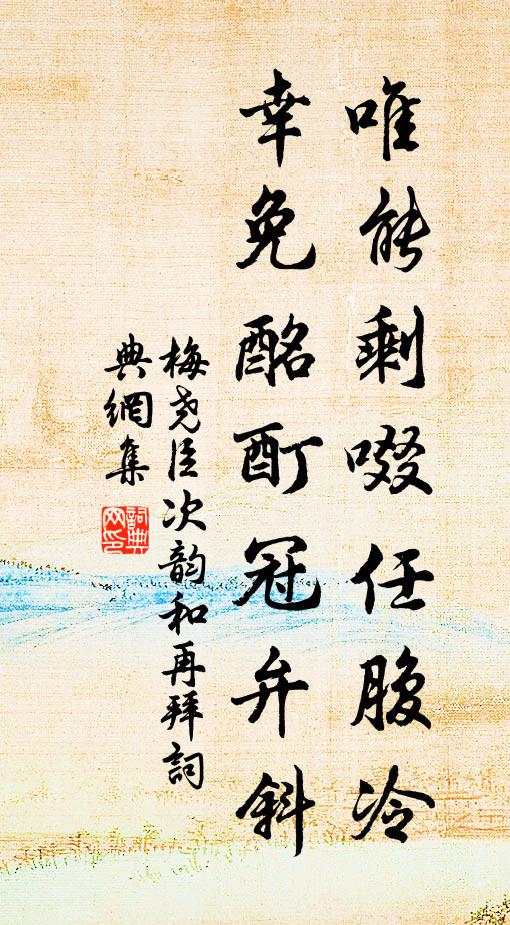 唯能剩啜任腹冷
幸免酩酊冠弁斜
梅尧臣次韵和再拜詞
典網集
詞典
网印